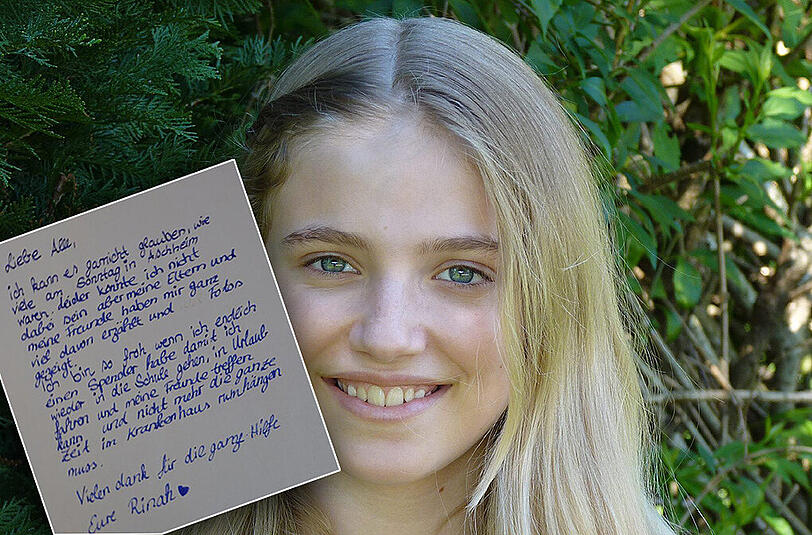 Liebe Alle,
ich kann es garnicht glauben, wie
viele am Sonntag in Aschheim
waren. Leider konnte ich nicht
dabei sein aber meine Eltern und
meine Freunde haben mir ganz
viel davon erzählt und Fotos
gezeigt.
Ich bin so froh wenn ich endlich
einen Spender habe damit ich
wieder in die Schule gehen, in Urlaub
fahren und meine Freunde treffen
kann und nicht mehr die ganze
Zeit im Krankenhaus rumhängen
muss.
Vielen dank für die ganze Hilfe
Eure Rinah